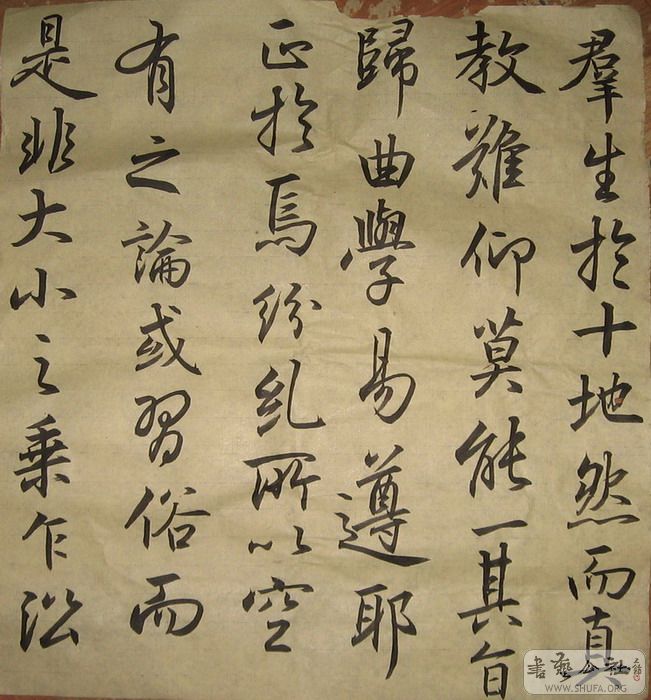 羣生於十地然而真
教難仰莫能一其旨
歸曲學易遵耶
正於焉紛糺所以空
有之論或習俗而
是非大小之乗乍沿
書艺公社
WWW.SHUFA.ORG